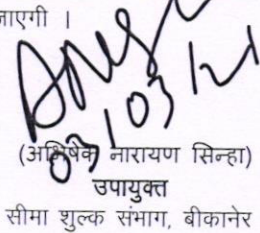 जाएगी ।
03/03/21
(अभिषेक नारायण सिन्हा)
उपायुक्त
सीमा शुल्क संभाग, बीकानेर